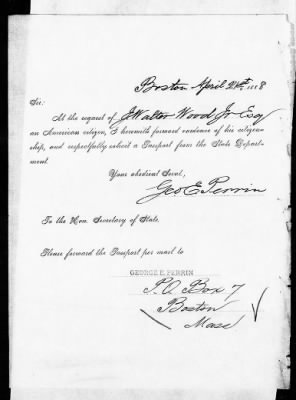 Boston April 21st 1888
Sir:
At the request of J Walter Wood Jr Esq
an American citizen, I herewith forward evidence of his citizen-
ship, and respectfully solicit a Passport from the State Depart-
ment.
Your obedient Servt,
Geo E Perrin
To the Hon. Secretary of State.
Please forward the Passport per mail to
GEORGE E. PERRIN
P.O. Box 7
Boston
Mass